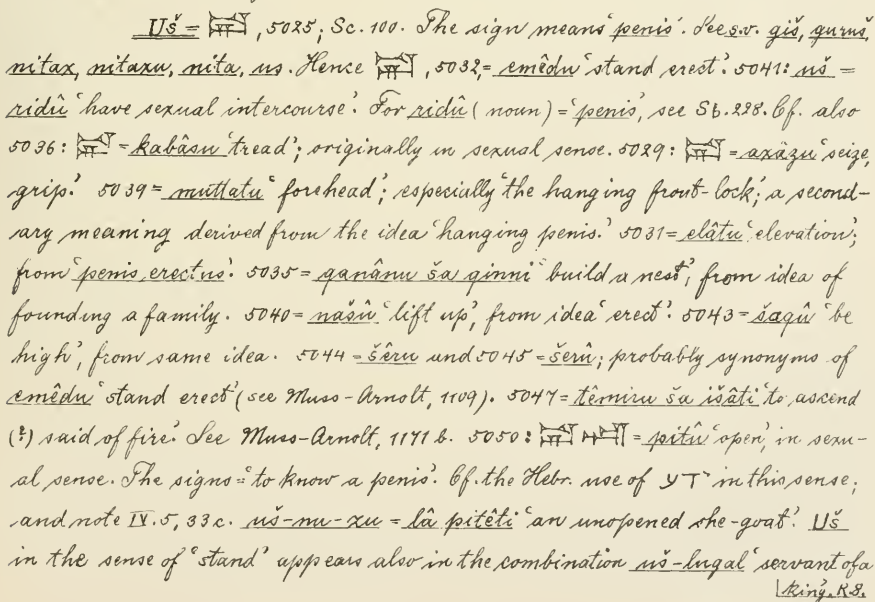 Uš = 𒍑, 5025; Sc. 100. The sign means 'penis'. See s.v. giš, guruš,
nitax, nitaxu, nita, us. Hence 𒍑, 5032, = emêdu 'stand erect'. 5041: uš =
ridû 'have sexual intercourse'. For ridû (noun) = 'penis', see Sb. 228. Cf. also
5036: 𒍑 = kabâsu 'tread'; originally in sexual sense. 5029: 𒍑 = axâzu 'seize,
grip'. 5039 = muttatu 'forehead'; especially 'the hanging front-lock'; a second-
ary meaning derived from the idea 'hanging penis.' 5031 = elâtu 'elevation';
from 'penis erectus'. 5035 = qanânu ša qinni 'build a nest', from idea of
founding a family. 5040 = našû 'lift up', from idea 'erect'. 5043 = šaqû 'be
high', from same idea. 5044 = šêru and 5045 = šerû; probably synonyms of
emêdu 'stand erect' (see Muss-Arnolt, 1109). 5047 = têmiru ša išâti 'to ascend
(?) said of fire'. See Muss-Arnolt, 1171 b. 5050: 𒍑 𒍪 = pitû 'open', in sexu-
al sense. The signs = 'to know a penis'. Cf. the Hebr. use of ידע in this sense;
and note IV. 5, 33c. uš-nu-zu = lâ pitêti 'an unopened she-goat'. Uš
in the sense of 'stand' appears also in the combination uš-lugal 'servant of a
king'. R.S.